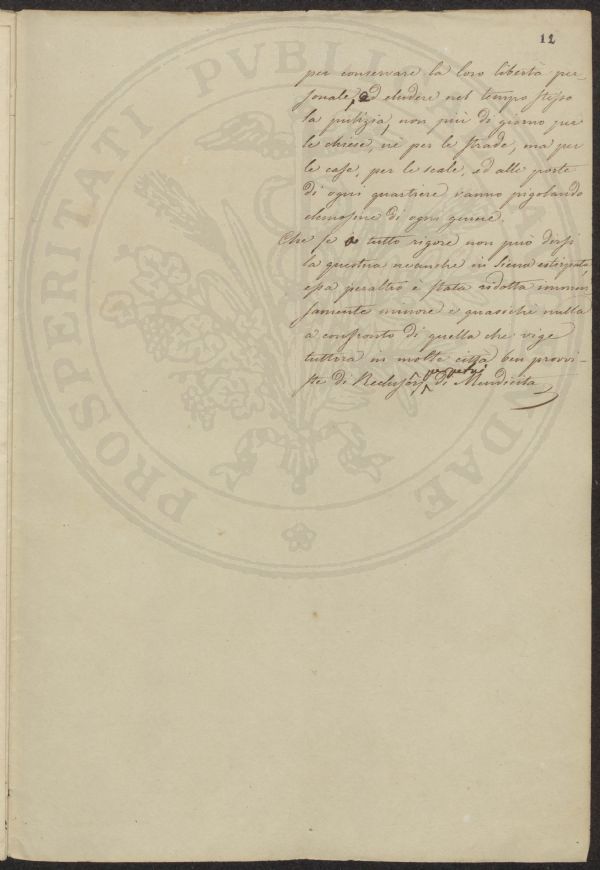 12
per conservare la loro libertà per-
sonale, ed eludere nel tempo stesso
la pulizia, non più di giorno per
le chiese, nè per le strade, ma per
le case, per le scale, ed alle porte
di ogni quartiere vanno pigolando
elemosine di ogni genere.
Che se a tutto rigore non può dirsi
la questua neanche in Siena estirpata,
essa peraltro è stata ridotta immen-
samente minore e quasichè nulla
a confronto di quella che vige
tuttora in molte città ben provvi-
ste di Reclusorj perpetui di Mendicità
PROSPERITATI PVBLICAE AVGENDAE